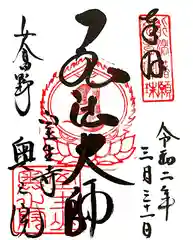 奉拝
令和二年
三月三十一日
弘法大師
女人高野
室生寺
奥之院